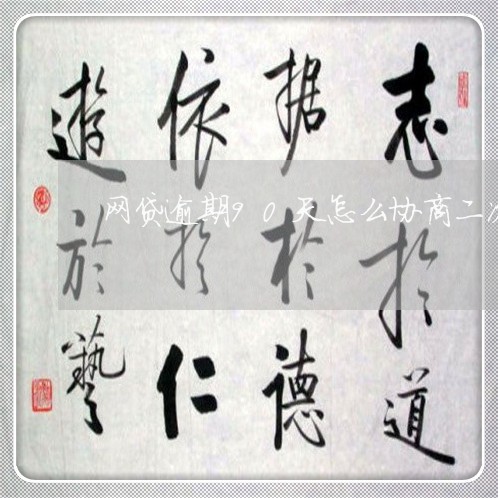 志於道
据於德
依於仁
遊於藝
网贷逾期90天怎么协商二